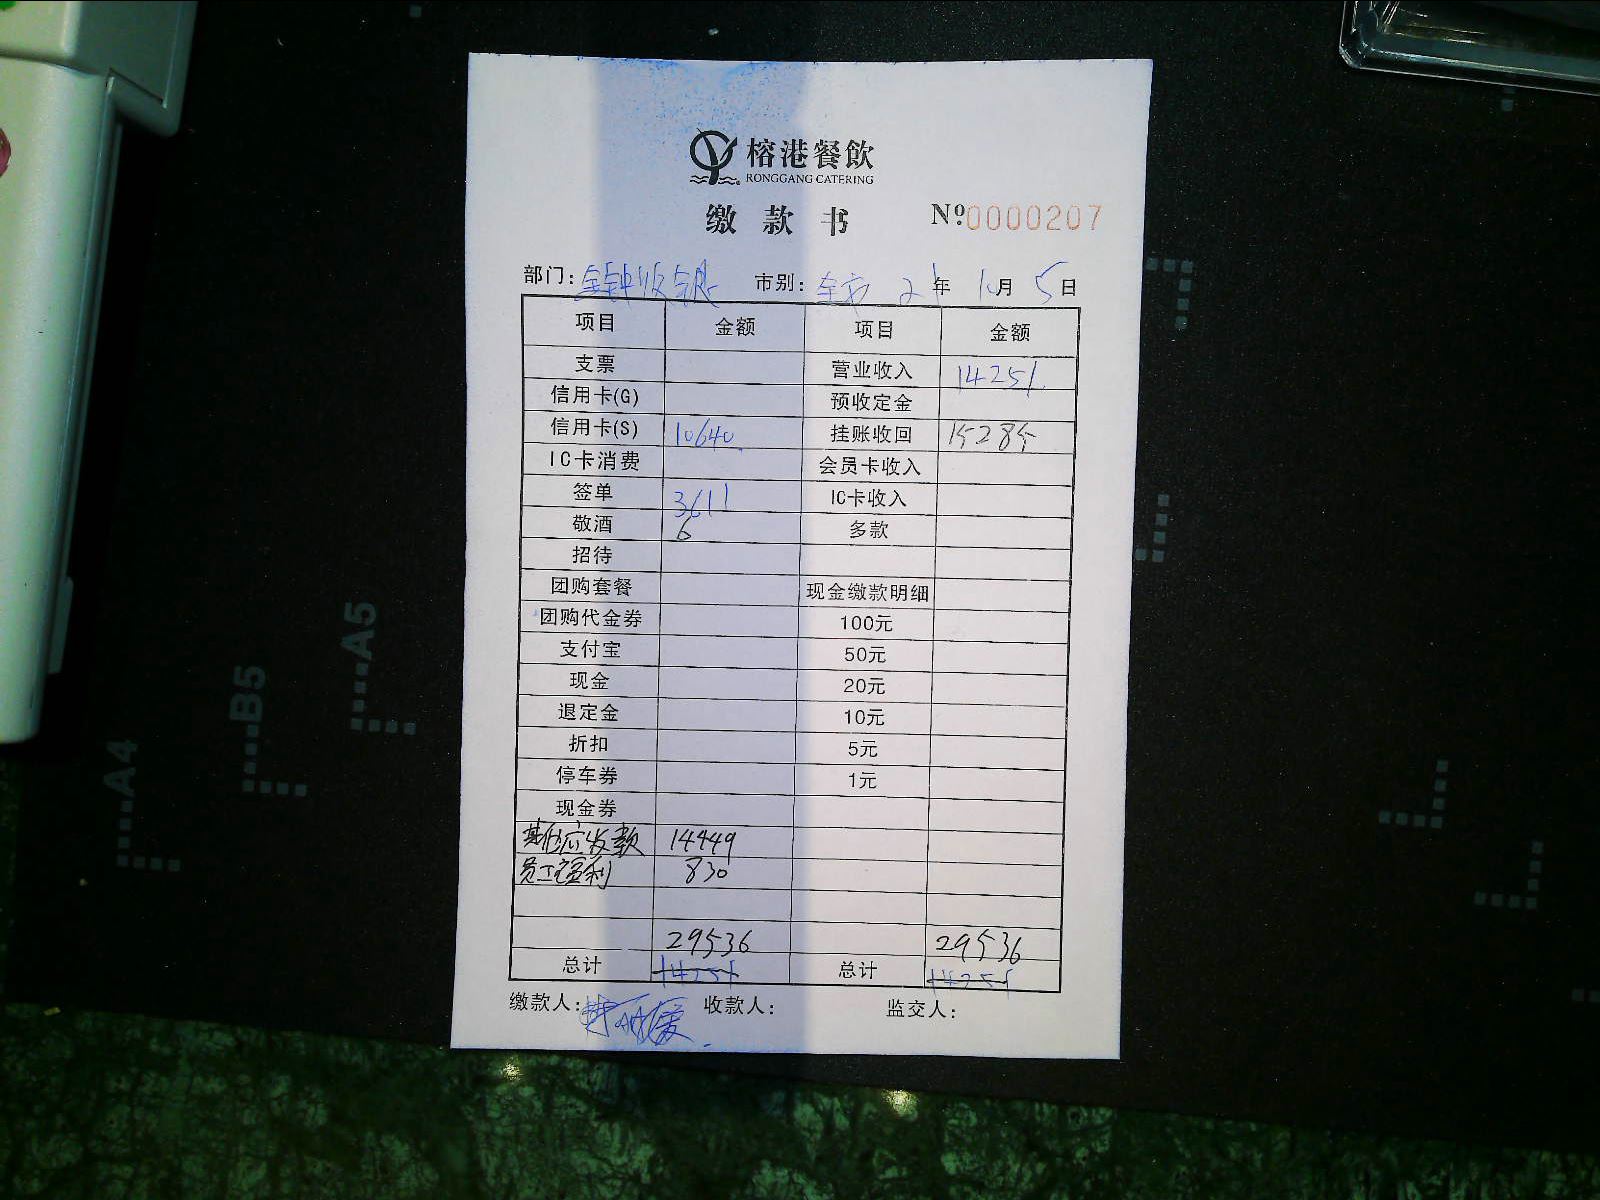 榕港餐飲
RONGGANG CATERING
缴款书 Nº0000207
部门：金钟收银 市别：全市 21年 10月 5日
项目 金额 项目 金额
支票 营业收入 14251
信用卡(G) 预收定金
信用卡(S) 10640 挂账收回 15285
IC卡消费 会员卡收入
签单 3611 IC卡收入
敬酒 6 多款
招待
团购套餐 现金缴款明细
团购代金券 100元
支付宝 50元
现金 20元
退定金 10元
折扣 5元
停车券 1元
现金券
其他应收款 14449
员工福利 830
29536 29536
总计 14251 总计 14251
缴款人： 收款人： 监交人：
A4
B5
A5